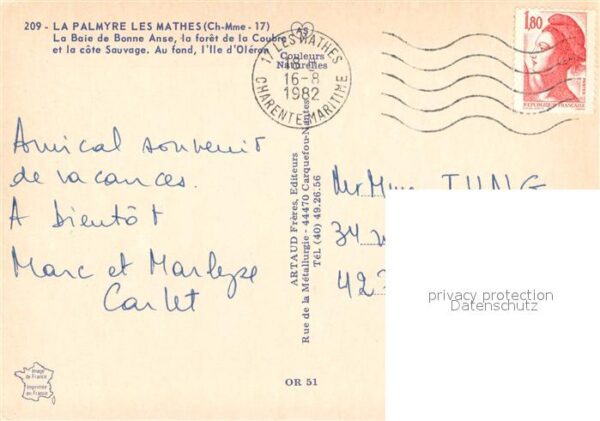 209 - LA PALMYRE LES MATHES (Ch-Mme - 17)
La Baie de Bonne Anse, la forêt de la Coubre
et la côte Sauvage. Au fond, l'Ile d'Oléron
Couleurs
Naturelles
17 LES MATHES
16-8
1982
CHARENTE MARITIME
1,80
REPUBLIQUE FRANÇAISE
Amical souvenir
de vacances.
A bientôt
Marc et Marlyse
Carlet
ARTAUD Frères, Editeurs
Rue de la Métallurgie - 44470 Carquefou-Nantes
Tél. (40) 49.26.56
Mr Mme JUNG
34
427
privacy protection
Datenschutz
Image
de France
Imprimée
en France
OR 51